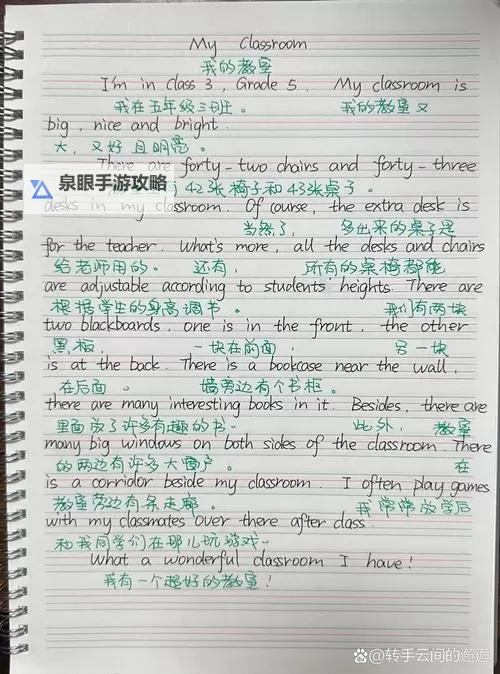 My Classroom
我的教室
I'm in class 3, Grade 5. My classroom is
我在五年级三班。 我的教室又
big, nice and bright.
大,又好且明亮。
There are forty-two chairs and forty-three
泉眼手游攻略
42张椅子和43张桌子。
desks in my classroom. Of course, the extra desk is
当然了, 多出来的桌子是
for the teacher. What's more, all the desks and chairs
给老师用的。 还有, 所有的桌椅都能
are adjustable according to students' heights. There are
根据学生的身高调节。 我们有两块
two blackboards, one is in the front, the other
黑板, 一块在前面, 另一块
is at the back. There is a bookcase near the wall,
在后面。 墙旁边有个书柜。
there are many interesting books in it. Besides, there are
里面放了许多有趣的书。 此外, 教室
many big windows on both sides of the classroom. There
的两边有许多大窗户。 在
is a corridor beside my classroom. I often play games
教室旁边有条走廊。 我常常放学后
with my classmates over there after class.
和我同学们在那儿玩游戏。
What a wonderful classroom I have!
我有一个超好的教室!
@转手云间的邂逅